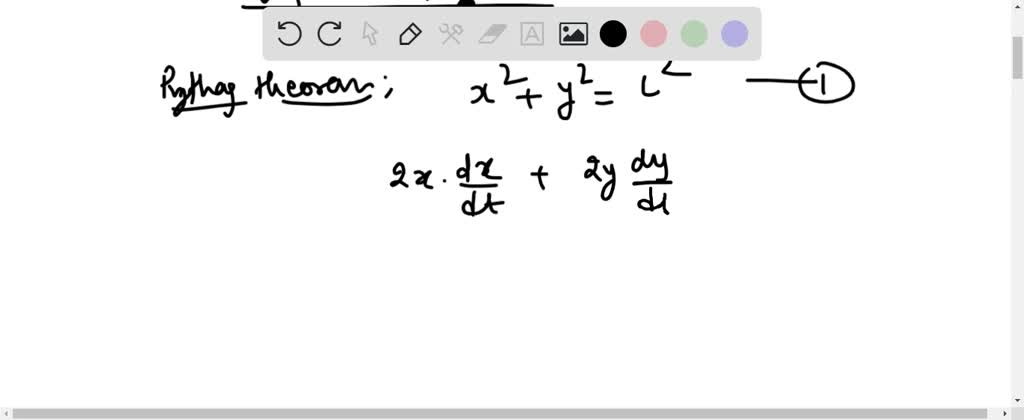 Pythag theoram; x² + y² = L² — ①
2x · dx/dt + 2y dy/dt